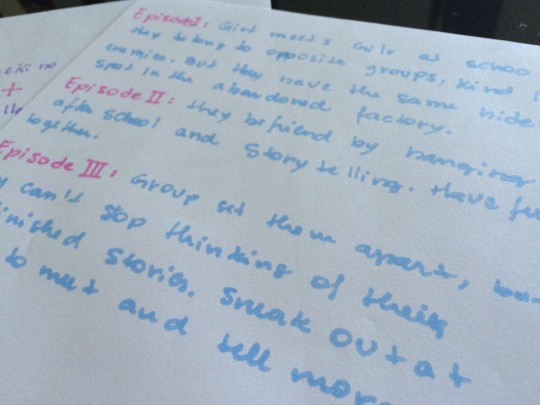 Episode I: Girl meets Girl at schoo
they belong to opposite groups, kind
enemies. But they have the same hide
spot in the abandoned factory.
Episode II: they befriend by hanging
after school and Story telling. Have fu
together.
Episode III: Group set them apart, bu
y can't stop thinking of their
inished stories. Sneak out at
to meet and tell more
eki no
+